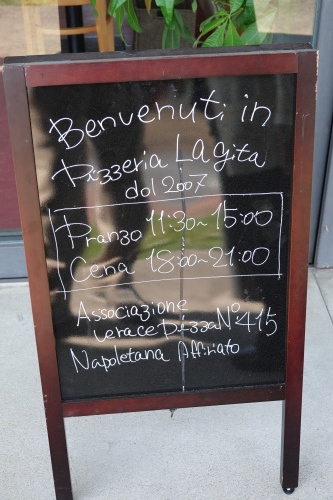 Benvenuti in
Pizzeria LAgita
dal 2007
Pranzo 11:30~15:00
Cena 18:00~21:00
Associazione
verace pizza N°415
Napoletana Affiriato